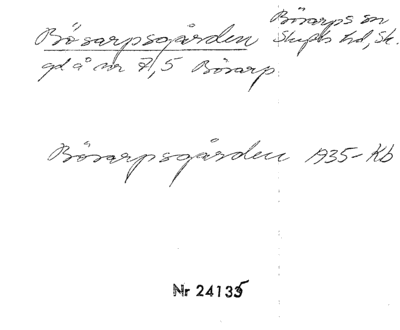 Bösarpsgården
Bösarps sn
Skytts hd, Sk.
gd å nr 7,5 Bösarp
Bösarpsgården 1935- Kb
Nr 24135